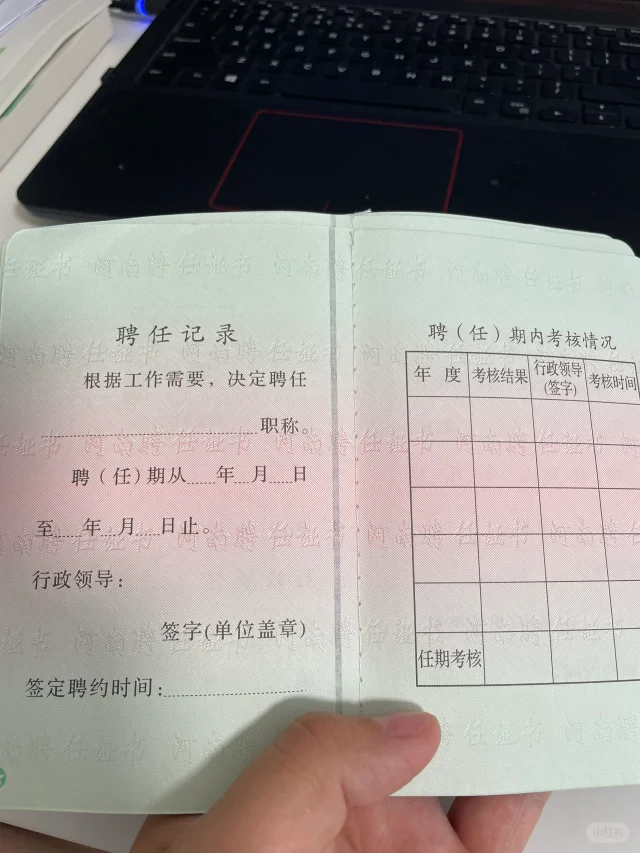 聘任记录
根据工作需要，决定聘任
职称。
聘（任）期从 年 月 日
至 年 月 日止。
行政领导：
签字(单位盖章)
签定聘约时间：
聘（任）期内考核情况
年 度 考核结果 行政领导(签字) 考核时间
任期考核
河南聘任证书
小红书